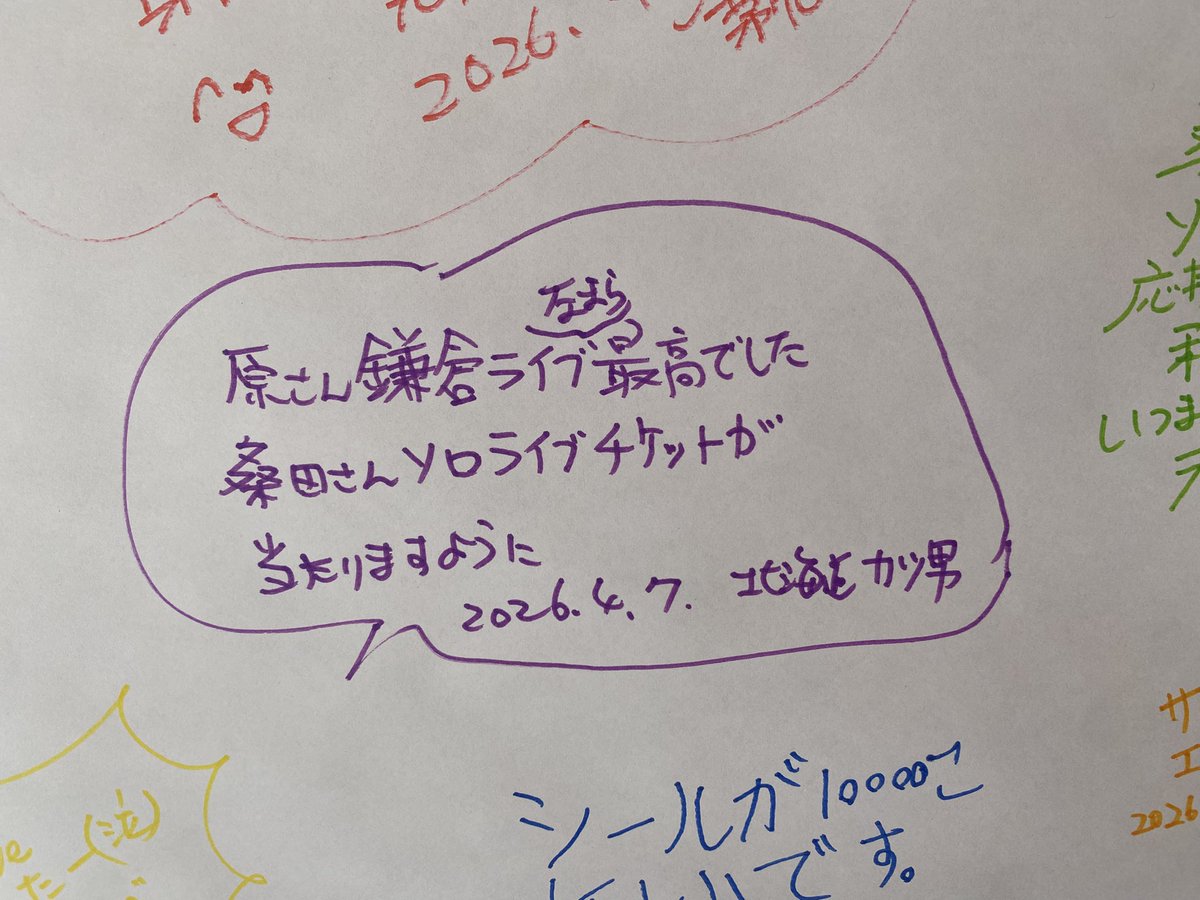 2026.
なまら
原さん鎌倉ライブ最高でした
桑田さんソロライブチケットが
当たりますように
2026.4.7. 北海道カツ男
いつま
(泣)
シールが10000こ
です。
2026